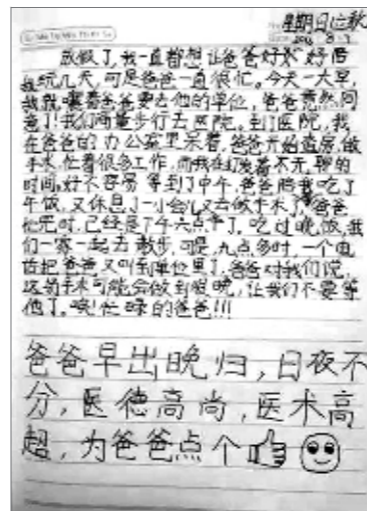 星期日
2016 8 7
放假了,我一直都想让爸爸好好陪
我玩几天,可是爸爸一直很忙。今天一大早,
我就嚷着爸爸要去他的单位,爸爸竟然同
意了!我们商量步行去医院。到了医院,我
在爸爸的办公室里呆着,爸爸开始查房,做
手术,忙着很多工作,而我在打发着不无聊的
时间,好不容易等到了中午,爸爸陪我吃了
午饭,又休息了一小会儿又去做手术了,爸爸
忙完时,已经是下午六点半了。吃过晚饭,我
们一家一起去散步,可是,九点多时,一个电
话把爸爸又叫到单位里了,爸爸对我们说,
这的手术可能会做到很晚,让我们不要等
他了。唉!忙碌的爸爸!!!
爸爸早出晚归,日夜不
分,医德高尚,医术高
超,为爸爸点个